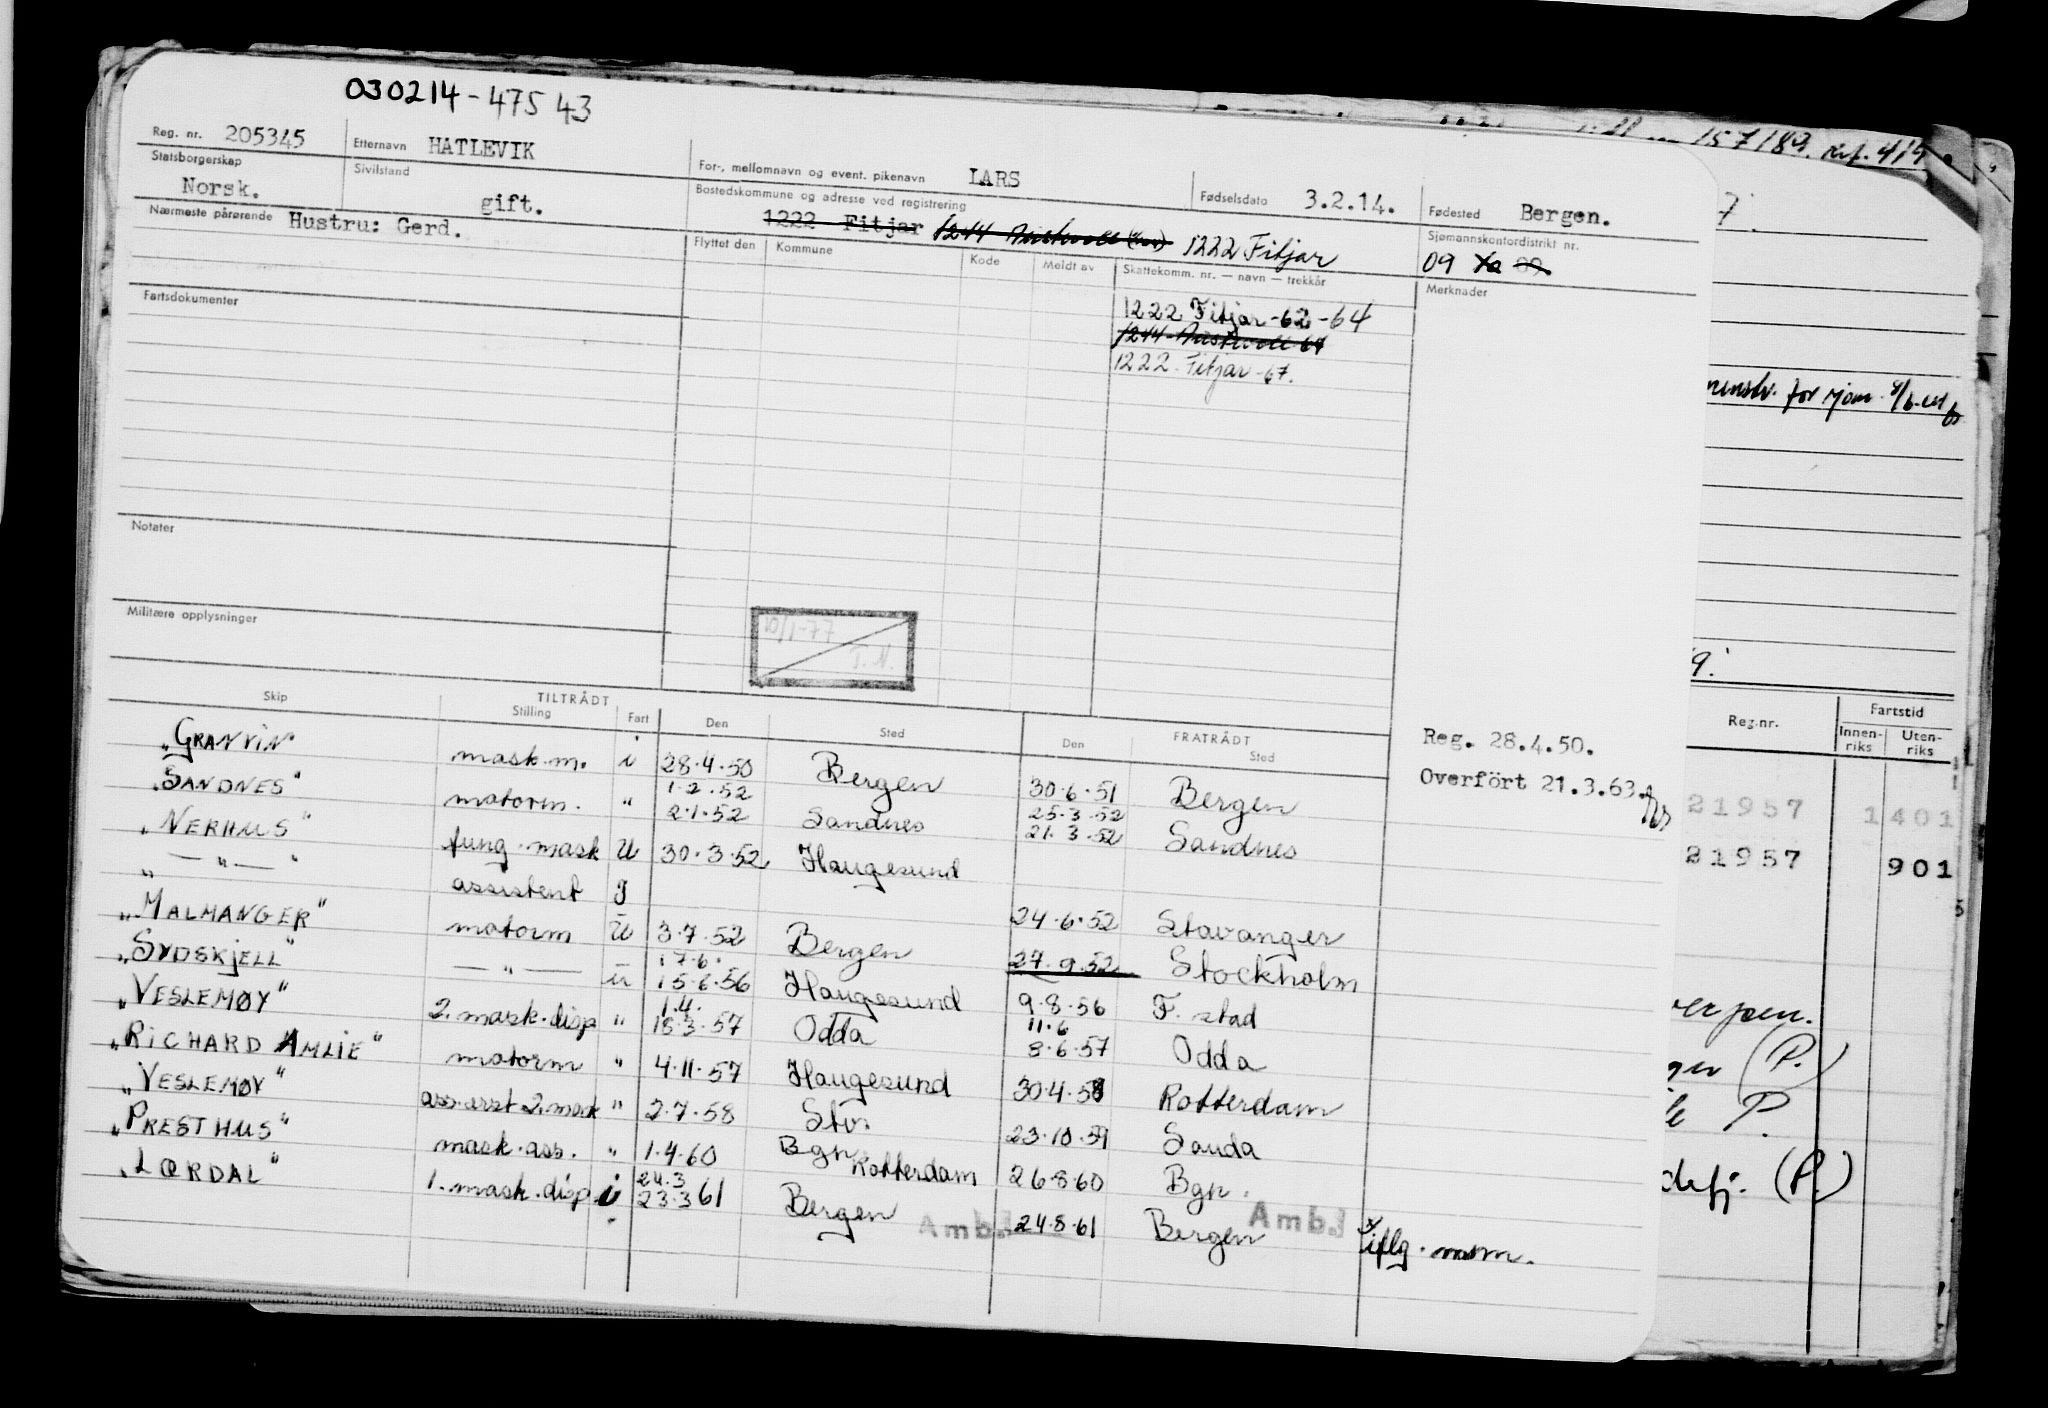 030214-475 43
Reg. nr. 205345 Etternavn HATLEVIK For-, mellomnavn og event. pikenavn LARS Fødselsdato 3.2.14. Fødested Bergen.
Statsborgerskap Norsk. Sivilstand gift. Bostedskommune og adresse ved registrering 1222 Fitjar 1244 Austevoll 1222 Fitjar Sjømannskontordistrikt nr. 09
Nærmeste pårørende Hustru: Gerd.
Flyttet den Kommune Kode Meldt av Skattekomm. nr. — navn — trekkår Merknader
Fartsdokumenter
1222 Fitjar-62-64
1244-Austevoll-64
1222. Fitjar-67.
Notater
Militære opplysninger
10/1-77
T.N.
TILTRÅDT FRATRÅDT
Skip Stilling Fart Den Sted Den Sted
Reg. 28.4.50.
Overfört 21.3.63.
„GRANVIN" mask.m. i 28.4.50 Bergen 30.6.51 Bergen
„SANDNES" motorm. " 1.2.52 2.1.52 Sandnes 25.3.52 21.3.52 Sandnes
„NERHUS" fung.mask U 30.3.52 Haugesund
„—"—" assistent 24.6.52 Stavanger
„MALMANGER" motorm U 3.7.52 Bergen 27.9.52 Stockholm
„SYDSKJELL" —"— u 17.6. 15.6.56 Haugesund 9.8.56 F.stad
„VESLEMØY" 2.mask.disp " 1.4. 18.3.57 Odda 11.6 8.6.57 Odda
„RICHARD AMLIE" motorm " 4.11.57 Haugesund 30.4.58 Rotterdam
„VESLEMØY" ass.asst 2.mask " 2.7.58 Stv. 23.10.59 Sauda
„PRESTHUS" mask.ass. " 1.4.60 Bgn Rotterdam 26.8.60 Bgn.
„LÆRDAL" 1.mask.disp i 24.3 23.3 61 Bergen Amb. 24.8.61 Bergen Amb.
157/89.
7.
9.
Reg.nr. Fartstid
Innen-riks Uten-riks
21957 1401
21957 901
(P.)
P.
(P.)